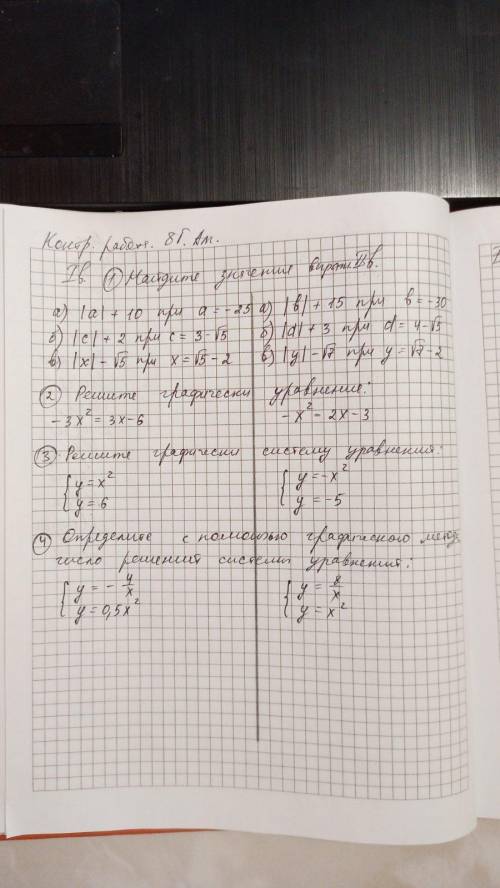 Контр. работ. 8Г. Ал.
Iв. ① Найдите значение выраж. IIв.
а) |a| + 10 при a = -25 а) |b| + 15 при b = -30
б) |c| + 2 при c = 3-√5 б) |d| + 3 при d = 4-√5
в) |x| - √5 при x = √5-2 в) |y| - √7 при y = √7-2
② Решите графически уравнение:
-3x² = 3x-6 -x² - 2x - 3
③ Решите графически систему уравнений:
{ y = x² { y = -x²
{ y = 6 { y = -5
④ Определите с помощью графического метода
число решений системы уравнений:
{ y = -4/x { y = 8/x
{ y = 0,5x² { y = x²